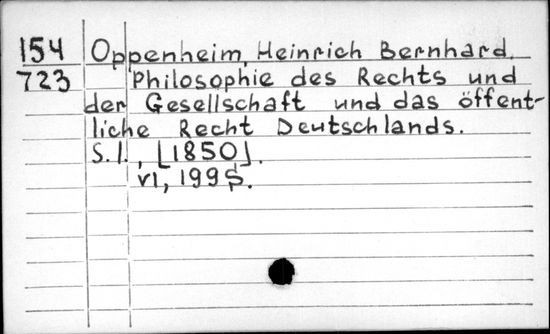 154 Oppenheim, Heinrich Bernhard.
723 Philosophie des Rechts und
der Gesellschaft und das öffent-
liche Recht Deutschlands.
S.l., [1850].
VI, 199 S.